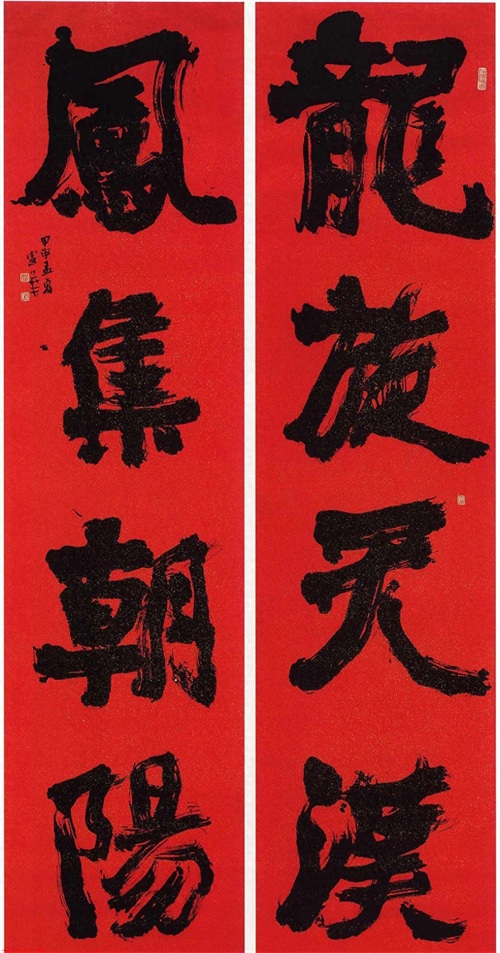 龍旋天漢
鳳集朝陽
甲申孟夏